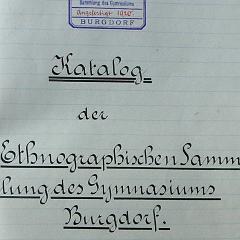 Sammlung des Gymnasiums
Angelegt 1920.
BURGDORF
Katalog
der
Ethnographischen Samm
lung des Gymnasiums
Burgdorf.